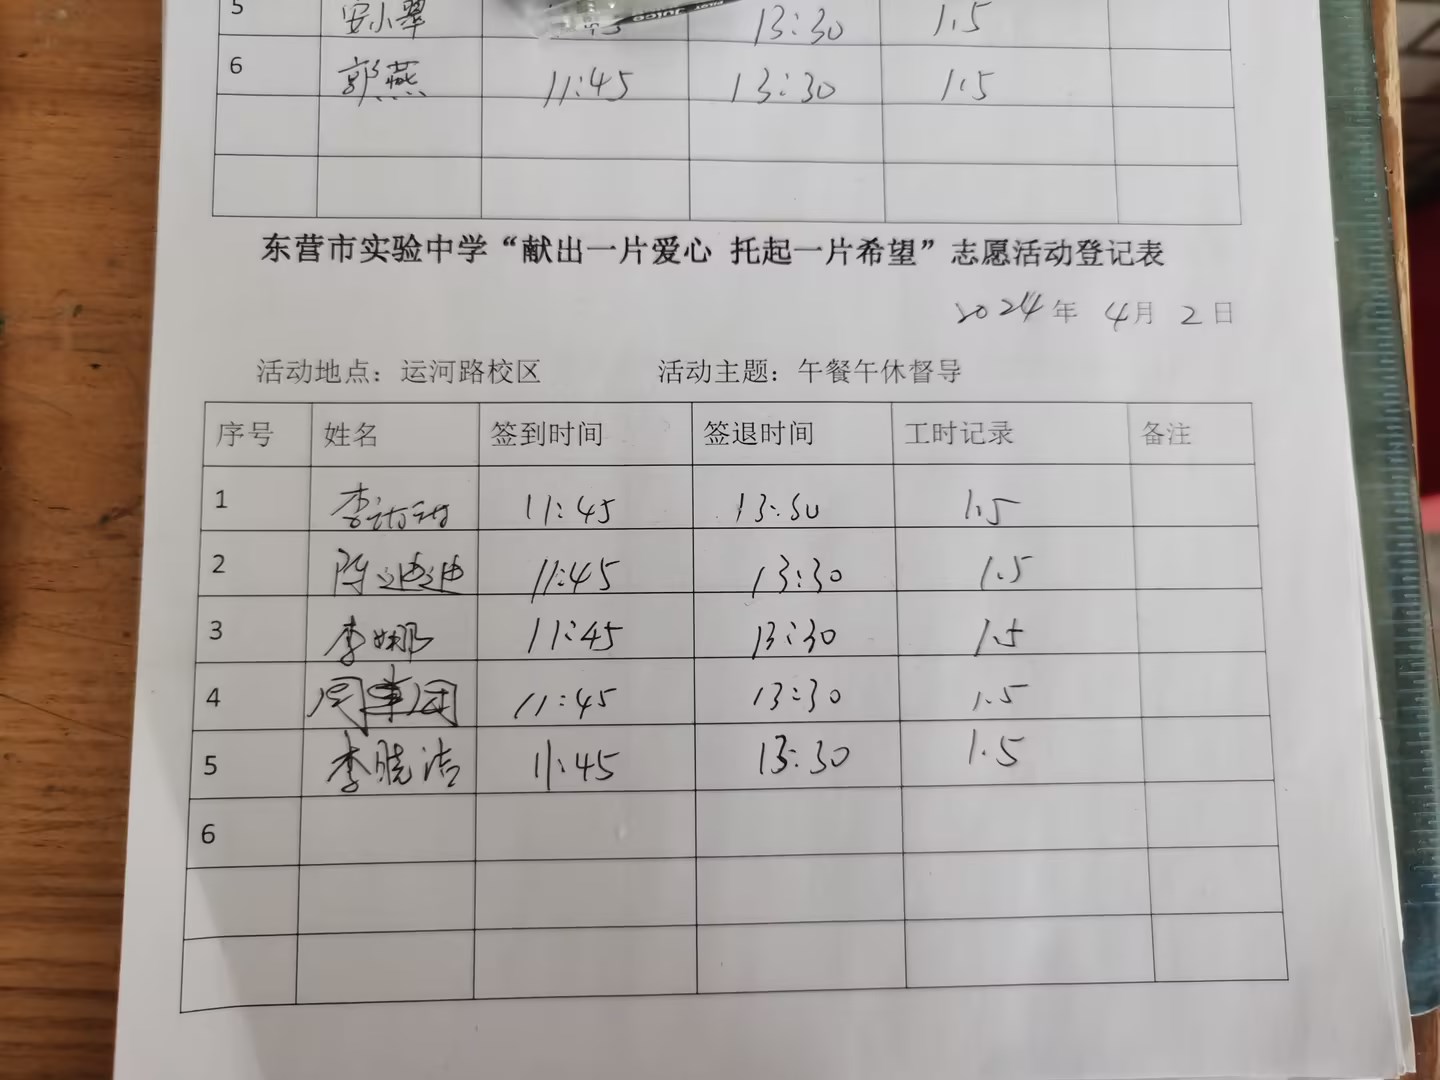 5 安小翠 13:30 1.5
6 郭燕 11:45 13:30 1.5
东营市实验中学“献出一片爱心 托起一片希望”志愿活动登记表
2024年 4月 2日
活动地点：运河路校区 活动主题：午餐午休督导
序号 姓名 签到时间 签退时间 工时记录 备注
1 李 11:45 13:30 1.5
2 陈迪迪 11:45 13:30 1.5
3 李娜 11:45 13:30 1.5
4 11:45 13:30 1.5
5 李晓洁 11:45 13:30 1.5
6